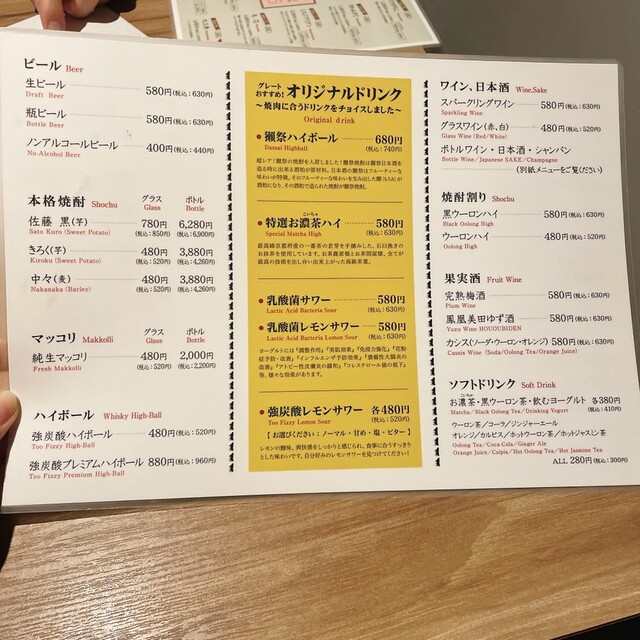 ビール Beer
生ビール 580円(税込:630円)
Draft Beer
瓶ビール 580円(税込:630円)
Bottle Beer
ノンアルコールビール 400円(税込:440円)
No-Alcohol Beer
本格焼酎 Shochu グラス Glass ボトル Bottle
佐藤 黒(芋) 780円(税込:850円) 6,280円(税込:6,900円)
Sato Kuro (Sweet Potato)
きろく(芋) 480円(税込:520円) 3,880円(税込:4,260円)
Kiroku (Sweet Potato)
中々(麦) 480円(税込:520円) 3,880円(税込:4,260円)
Nakanaka (Barley)
マッコリ Makkolli グラス Glass ボトル Bottle
純生マッコリ 480円(税込:520円) 2,000円(税込:2,200円)
Fresh Makkolli
ハイボール Whisky High-Ball
強炭酸ハイボール 480円(税込:520円)
Too Fizzy High-Ball
強炭酸プレミアムハイボール 880円(税込:960円)
Too Fizzy Premium High-Ball
グレートおすすめ! オリジナルドリンク
〜焼肉に合うドリンクをチョイスしました〜
Original drink
獺祭ハイボール 680円
Dassai Highball (税込:740円)
超レア!獺祭の焼酎を入荷しました!獺祭焼酎は獺祭日本酒を
造る時に出来る酒粕が原材料。日本酒の獺祭はフルーティーな
味わいが特徴。そのフルーティーな味わいを生み出した醪(もろみ)が
酒粕になり、その酒粕で造られた焼酎が獺祭焼酎。
特選お濃茶ハイ 580円
こいちゃ
Special Matcha High (税込:630円)
最高峰京都府産の一番茶の若芽を手摘みした、石臼挽きの
お抹茶を使用しています。お茶農家様とお茶問屋様、全てが
最高の技術を出し合い出来上がった高級茶葉。
乳酸菌サワー 580円
Lactic Acid Bacteria Sour (税込:630円)
乳酸菌レモンサワー 580円
Lactic Acid Bacteria Lemon Sour (税込:630円)
ヨーグルトには『調整作用』『美肌効果』『免疫力強化』『花粉
症予防・改善』『インフルエンザ予防効果』『潰瘍性大腸炎の
改善』『アトピー性皮膚炎の緩和』『コレステロール値の低下』
等、様々な効果があります。
強炭酸レモンサワー 各480円
Too Fizzy Lemon Sour (税込:520円)
【お選びください:ノーマル・甘め・塩・ビター】
レモンの酸味、爽快感をしっかりと感じられ、食事に合うすっきり
とした味わいです。自分好みのレモンサワーを見つけてください!
ワイン、日本酒 Wine,Sake
スパークリングワイン 580円(税込:630円)
Sparkling Wine
グラスワイン(赤、白) 480円(税込:520円)
Glass Wine (Red/White)
ボトルワイン・日本酒・シャンパン
Bottle Wine/Japanese SAKE/Champagne
(別紙メニューをご覧ください)
焼酎割り Shochu
黒ウーロンハイ 580円(税込:630円)
Black Oolong High
ウーロンハイ 480円(税込:520円)
Oolong High
果実酒 Fruit Wine
完熟梅酒 580円(税込:630円)
Plum Wine
鳳凰美田ゆず酒 580円(税込:630円)
Yuzu Wine HOUOUBIDEN
カシス(ソーダ・ウーロン・オレンジ) 580円(税込:630円)
Cassis Wine (Soda/Oolong Tea/Orange Juice)
ソフトドリンク Soft Drink
こいちゃ
お濃茶・黒ウーロン茶・飲むヨーグルト 各380円
Matcha/Black Oolong Tea/Drinking Yogurt (税込:410円)
ウーロン茶/コーラ/ジンジャーエール
オレンジ/カルピス/ホットウーロン茶/ホットジャスミン茶
Oolong Tea/Coca-Cola/Ginger Ale
Orange Juice/Calpis/Hot Oolong Tea/Hot Jasmine Tea
ALL 280円(税込:300円)